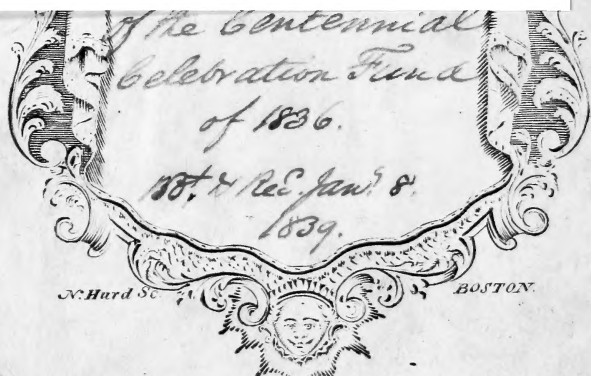 of the Centennial
Celebration Fund
of 1836.
Bt. & Rec. Jany. 8.
1839.
N. Hurd Sc. BOSTON.